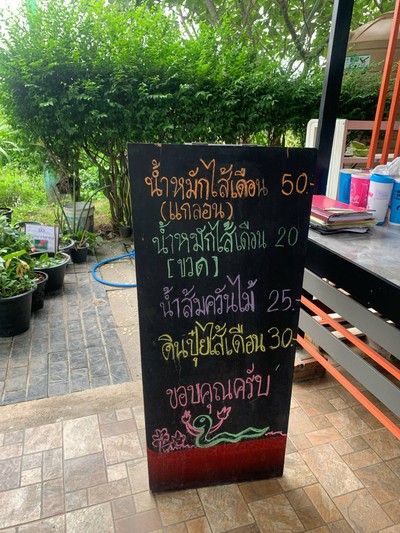 น้ำหมักไส้เดือน 50.-
(แกลลอน)
น้ำหมักไส้เดือน 20
[ขวด]
น้ำส้มควันไม้ 25.-
ดินปุ๋ยไส้เดือน 30.-
ขอบคุณครับ